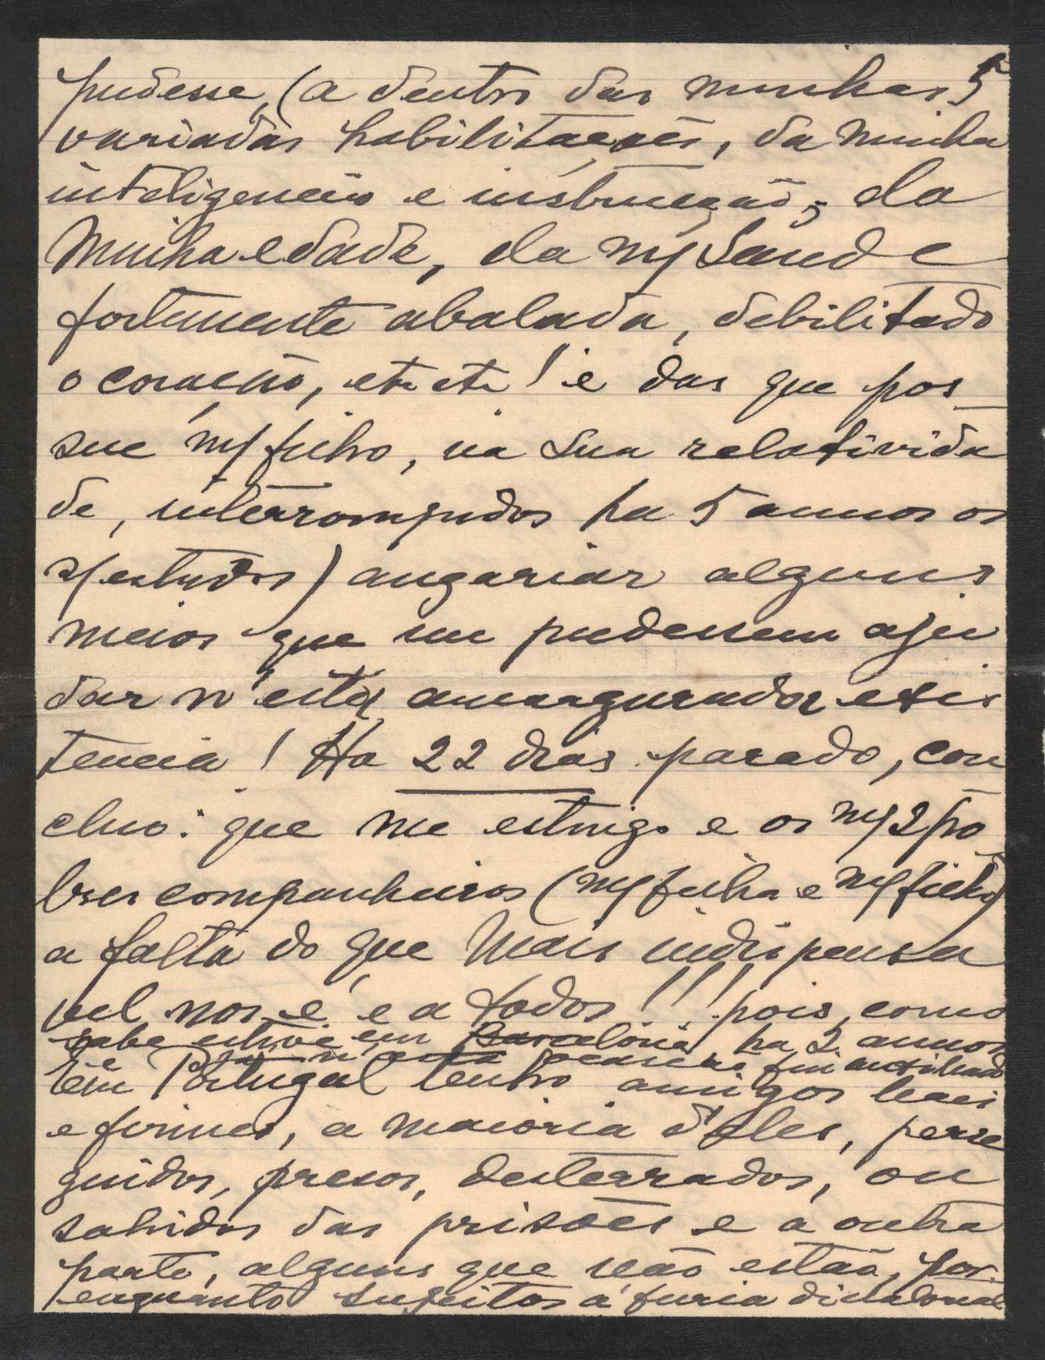 5
pudesse, (a dentro das minhas
variadas habilitações, da minha
inteligencia e instrucção, da
minha edade, da m/ saude
fortemente abalada, debilitado
o coração, etc etc! e das que pos_
sue m/ filho, na sua relativida
de, interrompidos ha 5 annos os
s/ estudos) angariar alguns
meios que me pudessem aju
dar n'esta amargurador exis
tencia! Ha 22 dias parado, con
cluo: que me estingo e os m/ 2 po
bres companheiros (m/ filha e m/ filho)
a falta do que mais indispensa
vel nos é, e a todos!!! pois, como
sabe estive em Barcelona ha 2 annos
e n'esta ocasião fui auxiliado
Em Portugal tenho amigos leais
e firmes, a maioria d'eles, perse
guidos, presos, desterrados, ou
sahidos das prisões e a outra
parte, alguns que não estão, por
enquanto sujeitos á furia dictatorial